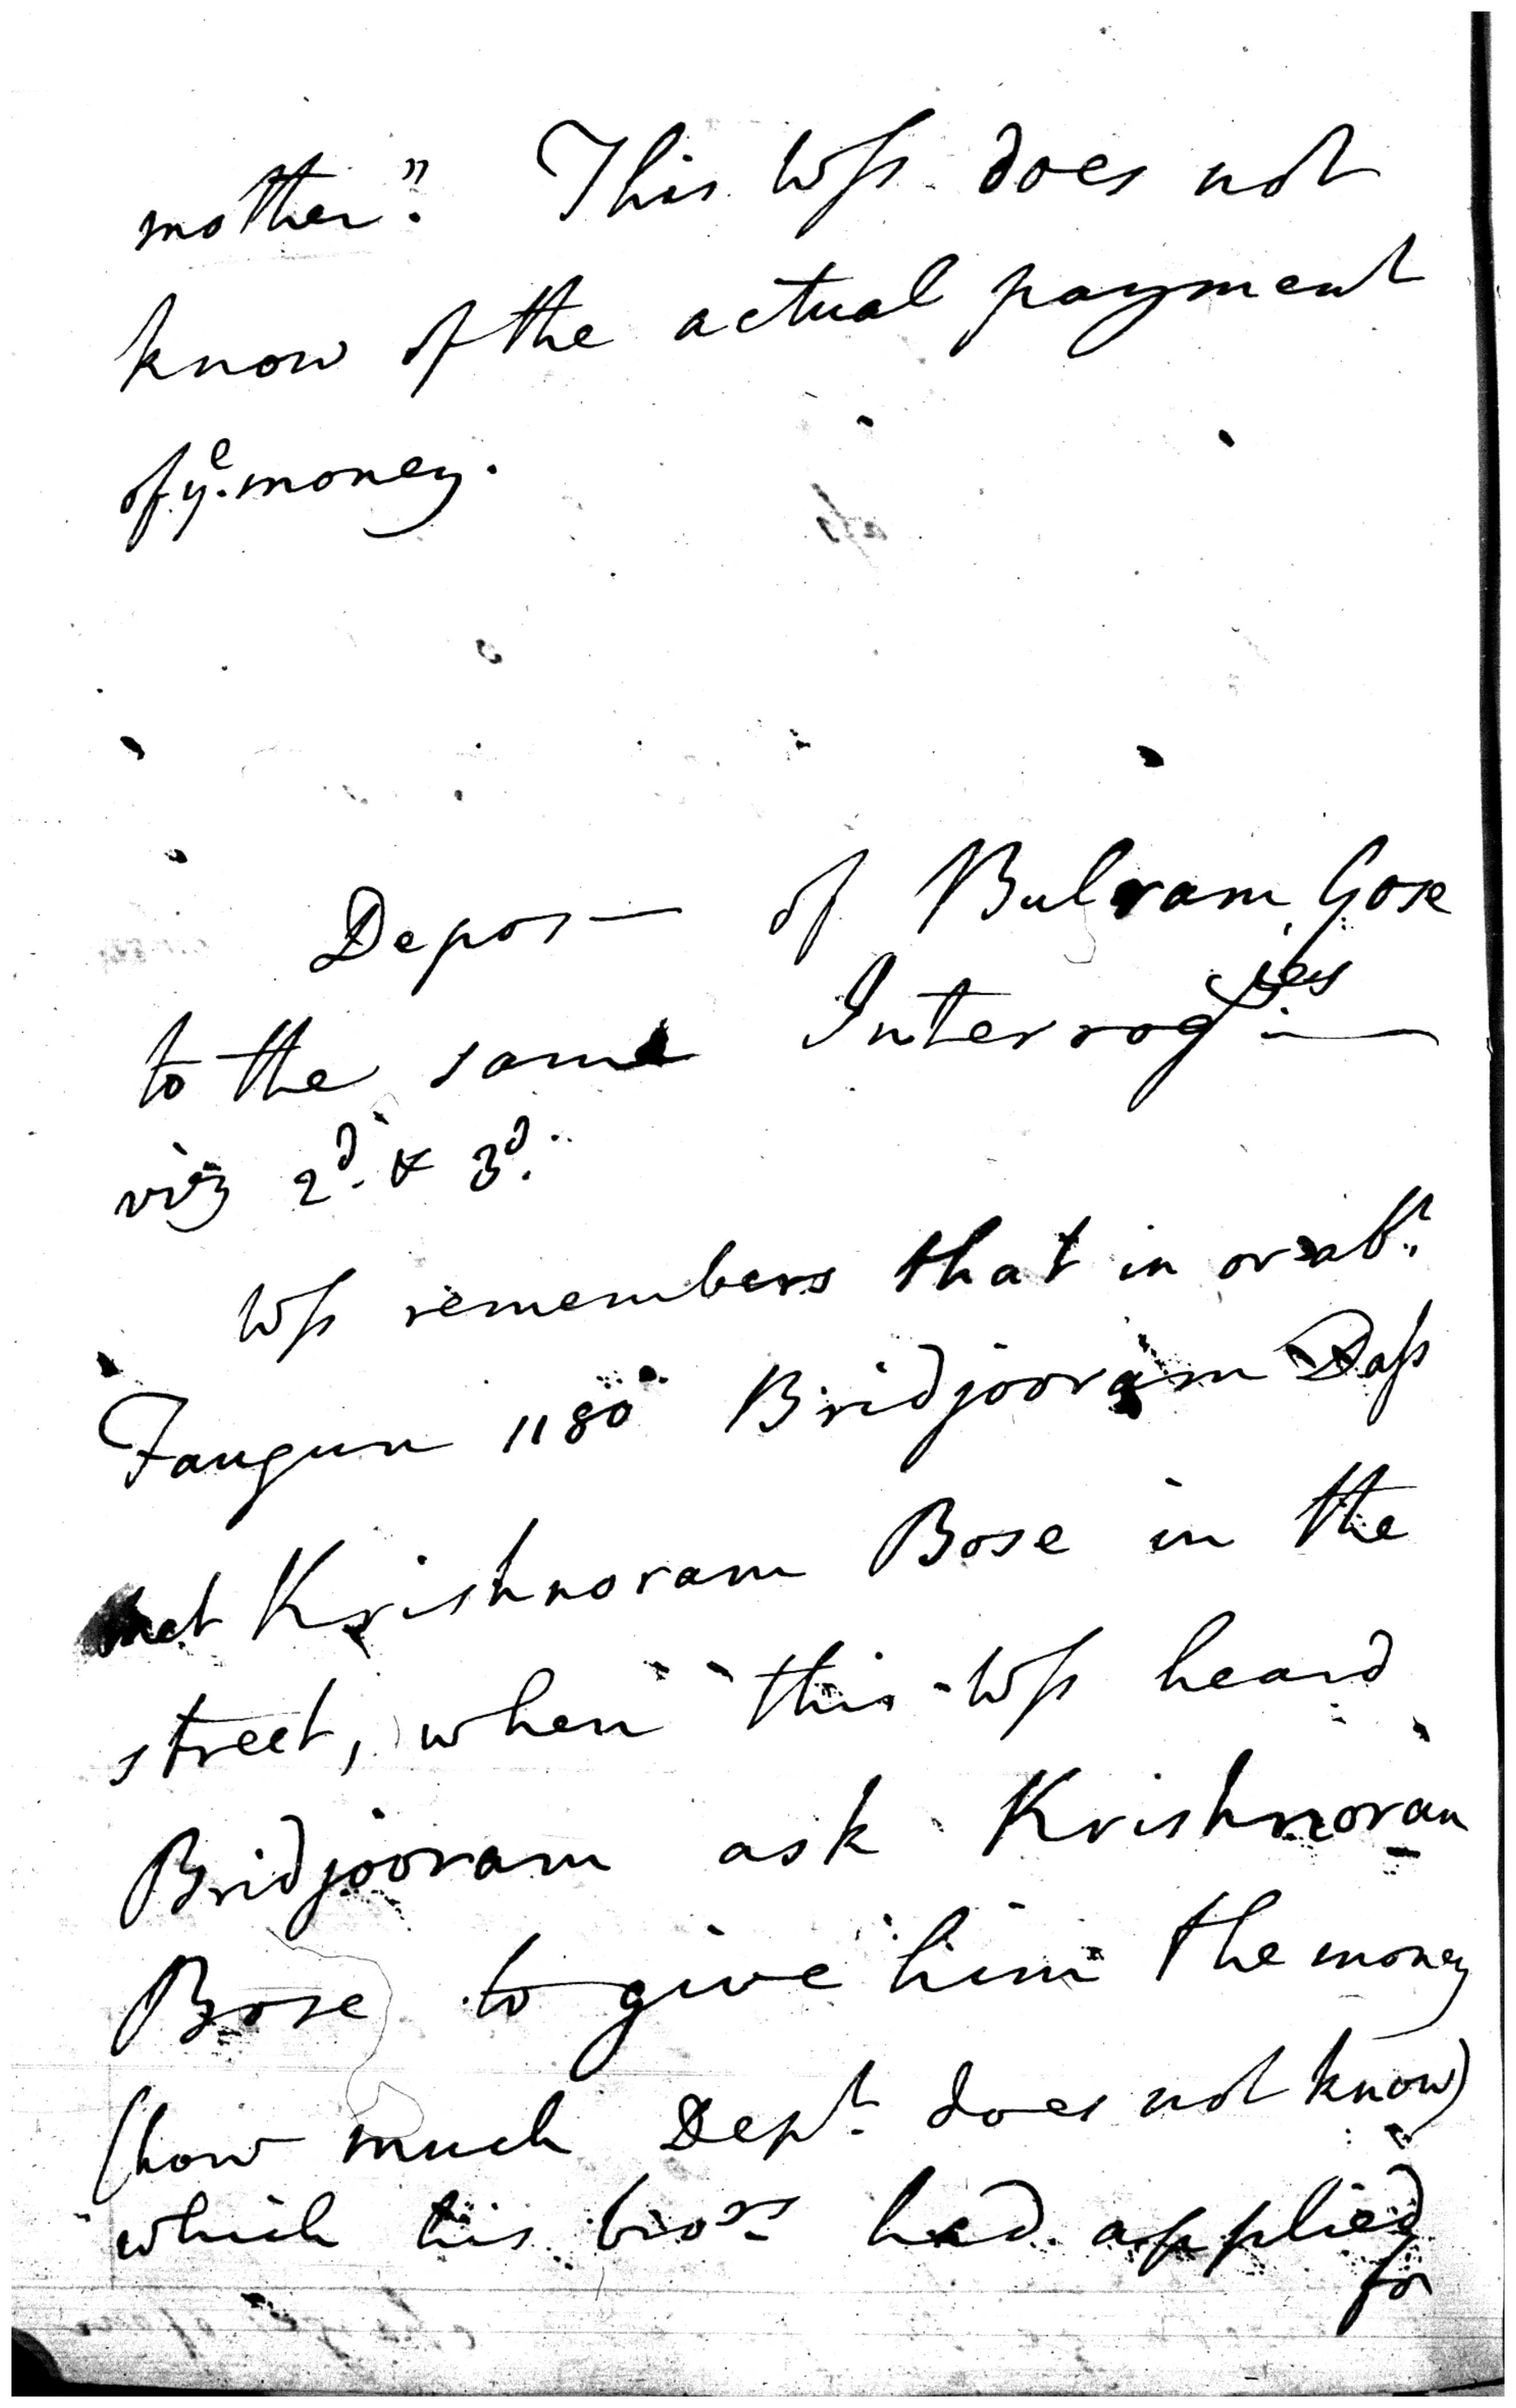 mother." This Wss does not
know of the actual payment
of ye. money.
Depos— of Bulram Gose
to the same Interrogies—
viz 2d. & 3d.
Wss remembers that in or abt.
Faugun 1180 Bridjooram Dass
met Krishnoram Bose in the
street, when this Wss heard
Bridjooram ask Krishnoram
Bose to give him the money
(how much Dept. does not know)
which his bror had applied
for